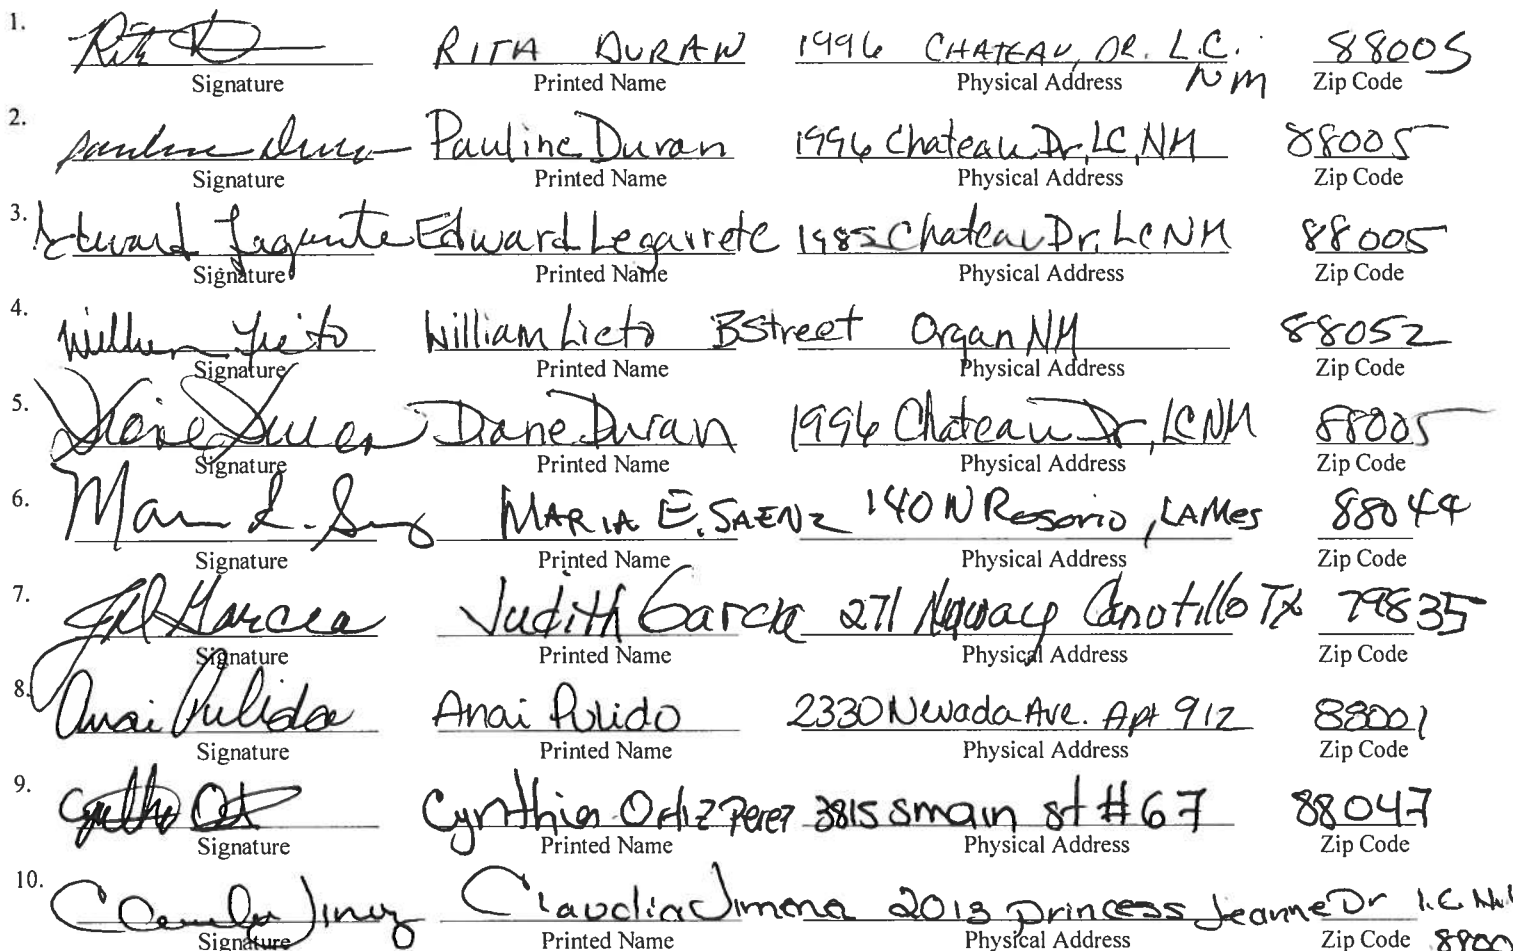 1. Rita D RITA DURAN 1996 CHATEAU, DR. L.C. 88005
Signature Printed Name Physical Address NM Zip Code
2. Pauline Duran Pauline Duran 1996 Chateau Dr, LC, NM 88005
Signature Printed Name Physical Address Zip Code
3. Edward Legarrete Edward Legarrete 1985 Chateau Dr, LC NM 88005
Signature Printed Name Physical Address Zip Code
4. William Lieto William Lieto B Street Organ NM 88052
Signature Printed Name Physical Address Zip Code
5. Diane Duran Diane Duran 1996 Chateau Dr, LC NM 88005
Signature Printed Name Physical Address Zip Code
6. Maria E. MARIA E. SAENZ 140 N Rosorio, LAMes 88044
Signature Printed Name Physical Address Zip Code
7. Garcia Judith Garcia 271 Canutillo TX 79835
Signature Printed Name Physical Address Zip Code
8. Anai Pulido Anai Pulido 2330 Nevada Ave. Apt 912 88001
Signature Printed Name Physical Address Zip Code
9. Cynthia Cynthia Ortiz Perez 3815 S main st #67 88047
Signature Printed Name Physical Address Zip Code
10. Claudia Claudia Jimena 2013 Princess Jeanne Dr L.C. NM
Signature Printed Name Physical Address Zip Code 8800